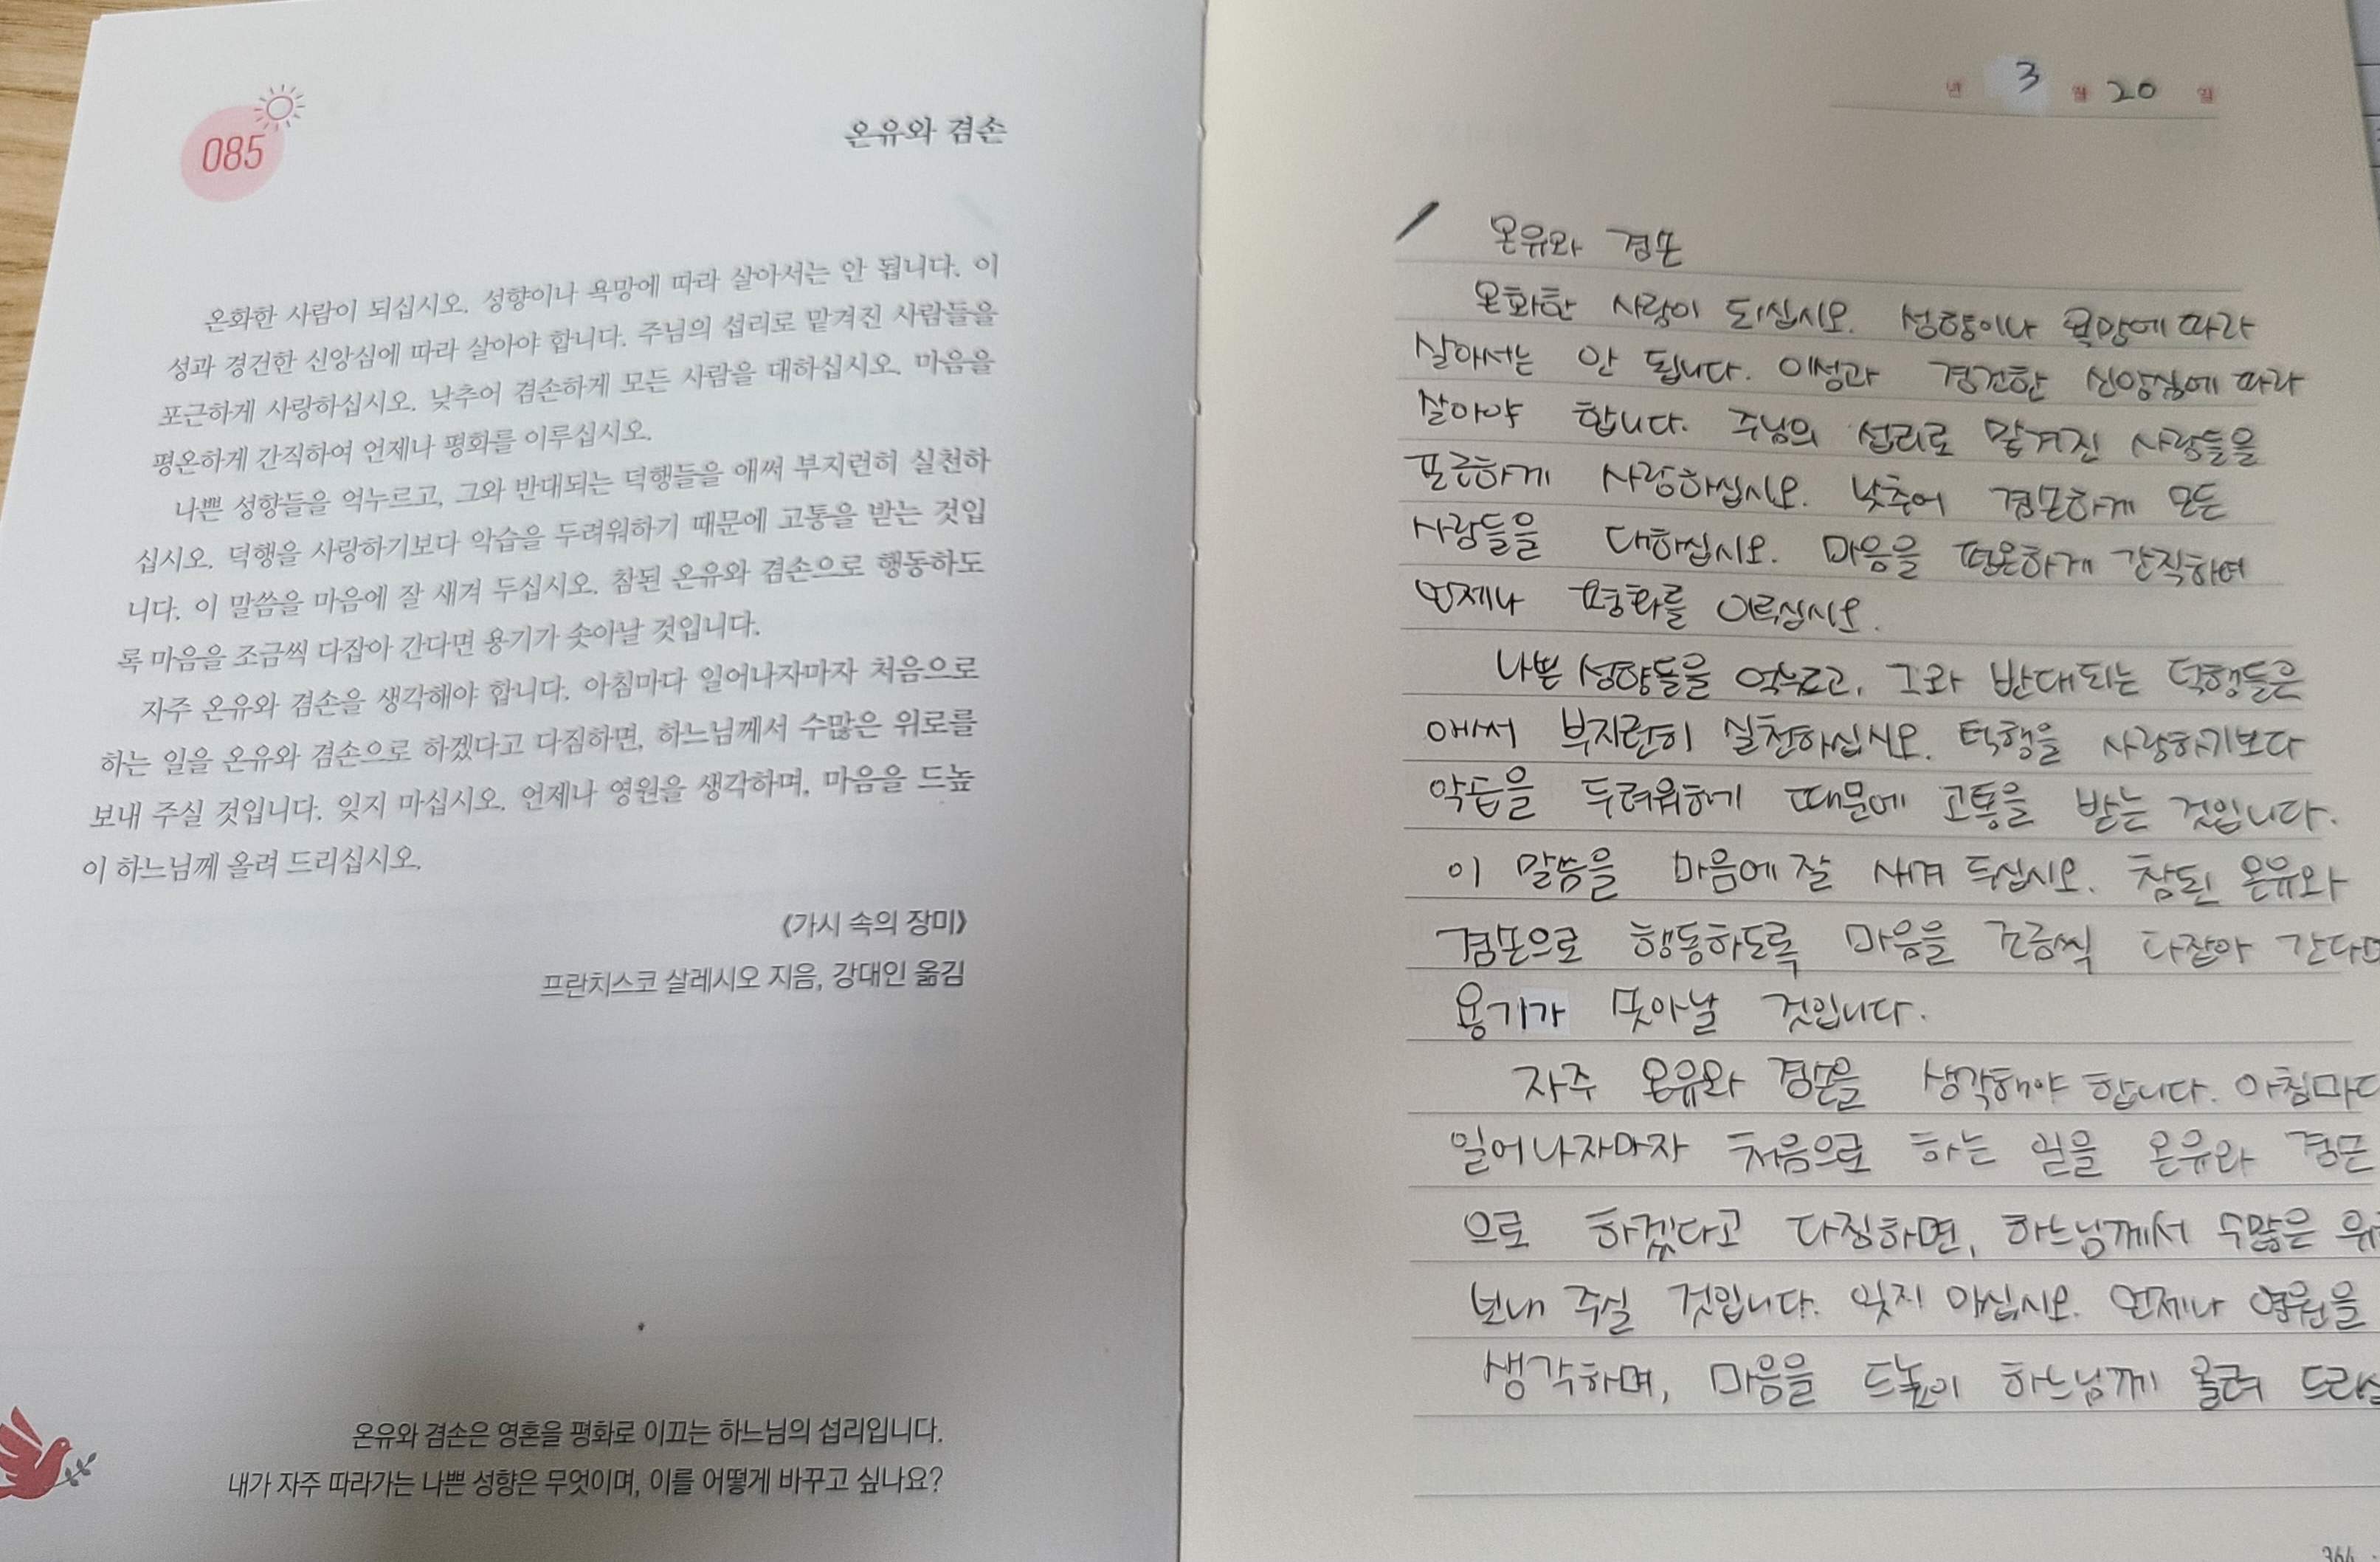 085
온유와 겸손
온화한 사람이 되십시오. 성향이나 욕망에 따라 살아서는 안 됩니다. 이
성과 경건한 신앙심에 따라 살아야 합니다. 주님의 섭리로 맡겨진 사람들을
포근하게 사랑하십시오. 낮추어 겸손하게 모든 사람을 대하십시오. 마음을
평온하게 간직하여 언제나 평화를 이루십시오.
나쁜 성향들을 억누르고, 그와 반대되는 덕행들을 애써 부지런히 실천하
십시오. 덕행을 사랑하기보다 악습을 두려워하기 때문에 고통을 받는 것입
니다. 이 말씀을 마음에 잘 새겨 두십시오. 참된 온유와 겸손으로 행동하도
록 마음을 조금씩 다잡아 간다면 용기가 솟아날 것입니다.
자주 온유와 겸손을 생각해야 합니다. 아침마다 일어나자마자 처음으로
하는 일을 온유와 겸손으로 하겠다고 다짐하면, 하느님께서 수많은 위로를
보내 주실 것입니다. 잊지 마십시오. 언제나 영원을 생각하며, 마음을 드높
이 하느님께 올려 드리십시오.
《가시 속의 장미》
프란치스코 살레시오 지음, 강대인 옮김
온유와 겸손은 영혼을 평화로 이끄는 하느님의 섭리입니다.
내가 자주 따라가는 나쁜 성향은 무엇이며, 이를 어떻게 바꾸고 싶나요?
년 3 월 20 일
온유와 겸손
온화한 사람이 되십시오. 성향이나 욕망에 따라
살아서는 안 됩니다. 이성과 경건한 신앙심에 따라
살아야 합니다. 주님의 섭리로 맡겨진 사람들을
포근하게 사랑하십시오. 낮추어 겸손하게 모든
사람들을 대하십시오. 마음을 평온하게 간직하여
언제나 평화를 이루십시오.
나쁜 성향들을 억누르고, 그와 반대되는 덕행들은
애써 부지런히 실천하십시오. 덕행을 사랑하기보다
악습을 두려워하기 때문에 고통을 받는 것입니다.
이 말씀을 마음에 잘 새겨 두십시오. 참된 온유와
겸손으로 행동하도록 마음을 조금씩 다잡아
용기가 솟아날 것입니다.
자주 온유와 겸손을 생각해야 합니다. 아침마다
일어나자마자 처음으로 하는 일을 온유와 겸손
으로 하겠다고 다짐하면, 하느님께서 수많은
보내 주실 것입니다. 잊지 마십시오. 언제나 영원을
생각하며, 마음을 드높이 하느님께 올려